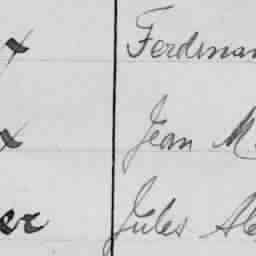 x Ferdinan
x Jean M
er Jules Ale